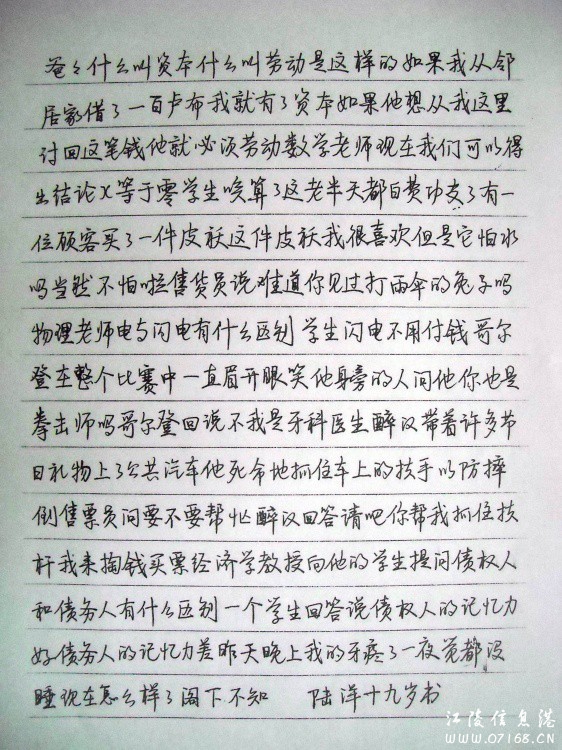 爸々什么叫资本什么叫劳动是这样的如果我从邻
居家借了一百卢布我就有了资本如果他想从我这里
讨回这笔钱他就必须劳动数学老师现在我们可以得
出结论X等于零学生唉算了这老半天都白费功夫了有一
位顾客买了一件皮袄这件皮袄我很喜欢但是它怕水
吗当然不怕啦售货员说难道你见过打雨伞的兔子吗
物理老师电与闪电有什么区别学生闪电不用付钱哥尔
登在整个比赛中一直眉开眼笑他身旁的人问他你也是
拳击师吗哥尔登回说不我是牙科医生醉汉带着许多节
日礼物上了公共汽车他死命地抓住车上的扶手以防摔
倒售票员问要不要帮忙醉汉回答请吧你帮我抓住扶
杆我来掏钱买票经济学教授向他的学生提问债权人
和债务人有什么区别一个学生回答说债权人的记忆力
好债务人的记忆力差昨天晚上我的牙疼了一夜觉都没
睡现在怎么样了阁下不知 陆洋十九岁书
江陵信息港
WWW.07168.CN